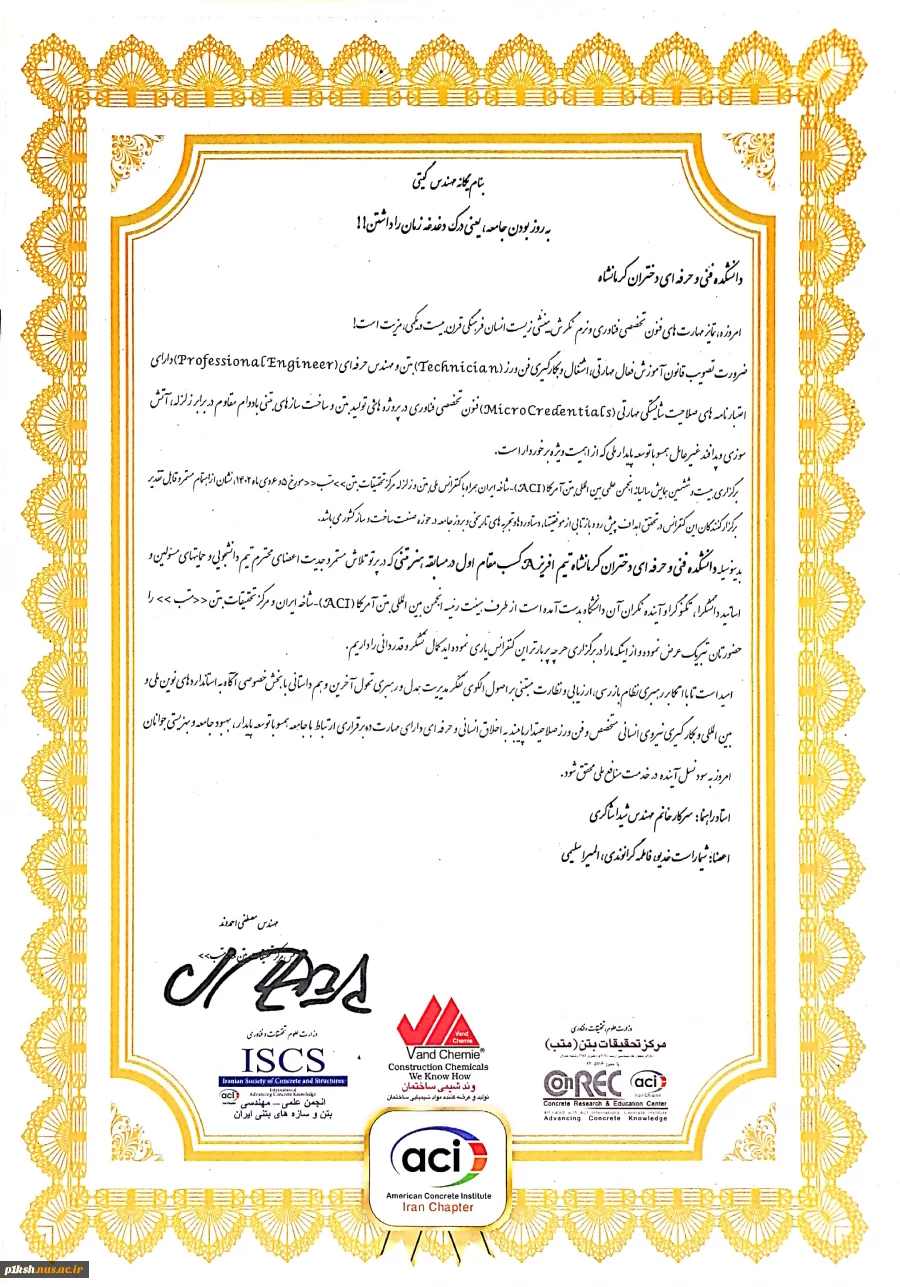 بنام یگانه مهندس گیتی
به روز بودن جامعه، یعنی درک دغدغه زمان را داشتن!!
دانشکده فنی و حرفه ای دختران کرمانشاه
امروزه، تمایز مهارت های فنون تخصصی فناوری و نرم نگرش بینشی زیست انسان فرهنگی قرن بیست و یکمی، مزیت است!
ضرورت تصویب قانون آموزش فعال مهارتی، اشتغال و بکارگیری فن ورز (Technician) بتن و مهندس حرفه ای (Professional Engineer) دارای
اعتبارنامه های صلاحیت شایستگی مهارتی (MicroCredentials) فنون تخصصی فناوری در پروژه های تولید بتن و ساخت سازهای بتنی بادوام مقاوم در برابر زلزله، آتش
سوزی و پدافند غیرعامل همسو با توسعه پایدار ملی که از اهمیت ویژه برخوردار است.
برگزاری بیست و ششمین همایش سالیانه انجمن علمی بین المللی بتن آمریکا (ACI)-شاخه ایران همراه با کنفرانس ملی بتن و زلزله مرکز تحقیقات بتن >>متب<< مورخ ۵ و ۶ دی ماه ۱۴۰۲، نشان از اهتمام مستمر و قابل تقدیر
برگزارکنندگان این کنفرانس در تحقق اهداف پیش رو و بازتابی از موفقیتها، دستاوردها و تجربه های تاریخی و بروز جامعه در حوزه صنعت ساخت و ساز کشور می باشد.
بدینوسیله دانشکده فنی و حرفه ای دختران کرمانشاه تیم افریز A کسب مقام اول در مسابقه هنر بتنی که در پرتو تلاش مستمر و جدیت اعضای محترم تیم دانشجویی و حمایتهای مسئولین و
اساتید دانشگرا، تکنوگرا و آینده نگران آن دانشگاه بدست آمده است از طرف هیئت رئیسه انجمن بین المللی بتن آمریکا (ACI)-شاخه ایران و مرکز تحقیقات بتن <<متب>> را
حضورتان تبریک عرض نموده و از اینکه ما را در برگزاری هرچه پربارتر این کنفرانس یاری نموده اید کمال تشکر و قدردانی را داریم.
امید است تا با اتکا بر رهبری نظام بازرسی، ارزیابی و نظارت مبتنی بر اصول الگوی تفکر مدیریت همدل و رهبری تحول آخرین و هم داستانی با بخش خصوصی آگاه به استانداردهای نوین ملی و
بین المللی و بکارگیری نیروی انسانی متخصص و فن ورز صلاحیتدار پایبند به اخلاق انسانی و حرفه ای دارای مهارت در برقراری ارتباط با جامعه همسو با توسعه پایدار، بهبود جامعه و بهزیستی جوانان
امروز به سود نسل آینده در خدمت منافع ملی محقق شود.
استاد راهنما: سرکار خانم مهندس شیدا شاکری
اعضا: شیما راست خدیو، فاطمه گراوندی، المیرا سلیمی
مهندس مصطفی احمدوند
وزارت علوم، تحقیقات و فناوری
ISCS
Iranian Society of Concrete and Structures
aci
International
Advancing Concrete Knowledge
انجمن علمی - مهندسی
بتن و سازه های بتنی ایران
Vand Chemie
Vand Chemie®
Construction Chemicals
We Know How
وند شیمی ساختمان
تولید و عرضه کننده مواد شیمیایی ساختمان
وزارت علوم، تحقیقات و فناوری
مرکز تحقیقات بتن (متب)
ConREC
aci
Iran Chapter
Concrete Research & Education Center
Affiliated with ACI International Concrete Institute
Advancing Concrete Knowledge
aci
American Concrete Institute
Iran Chapter
p1ksh.nus.ac.ir